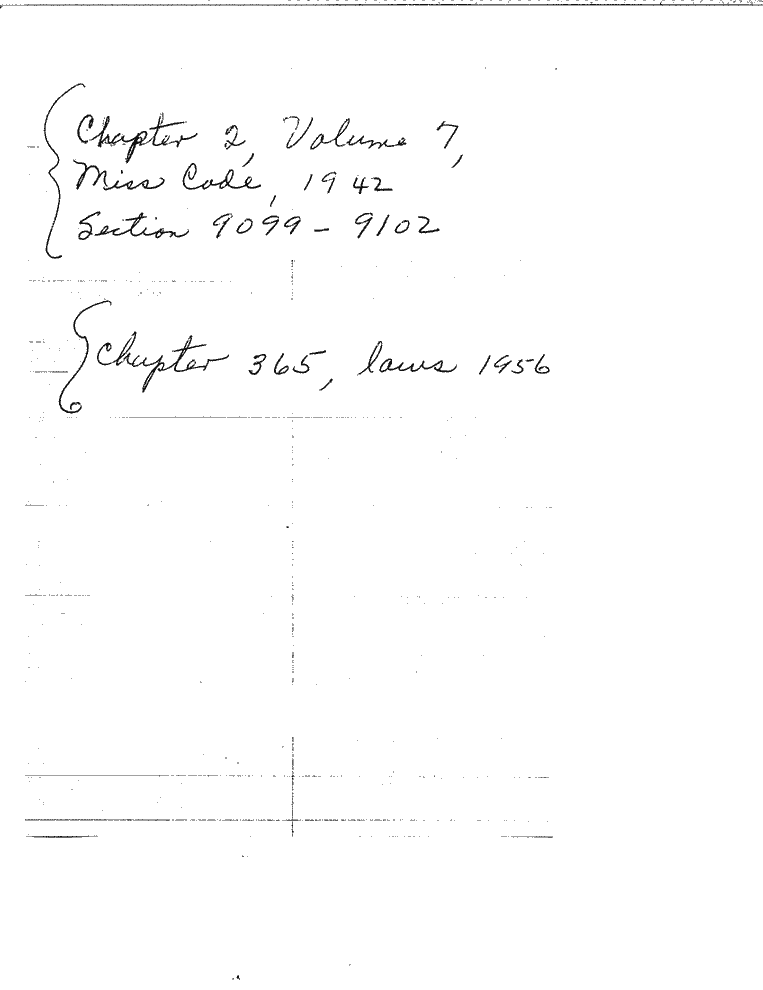 Chapter 2, Volume 7,
Miss Code, 1942
Section 9099 - 9102
Chapter 365, laws 1956